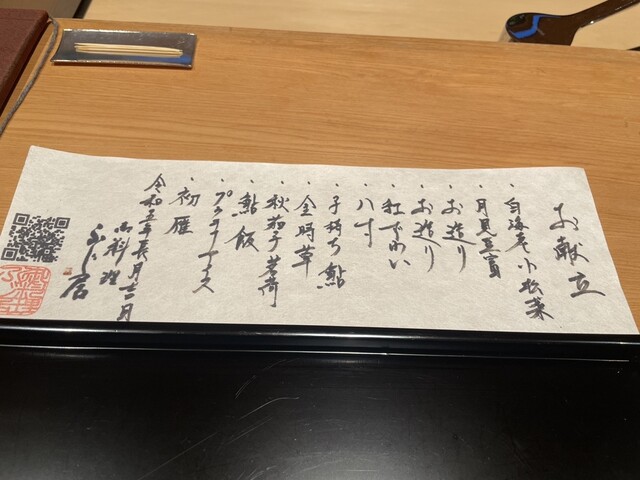 お献立
・白海老 小松菜
・月見豆腐
・お造り
・お造り
・紅ずわい
・八寸
・子持ち鮎
・金時草
・秋茄子 茗荷
・鮎飯
・ブラマンジェ
・初雁
令和五年長月十二日
御料理 ふじ居